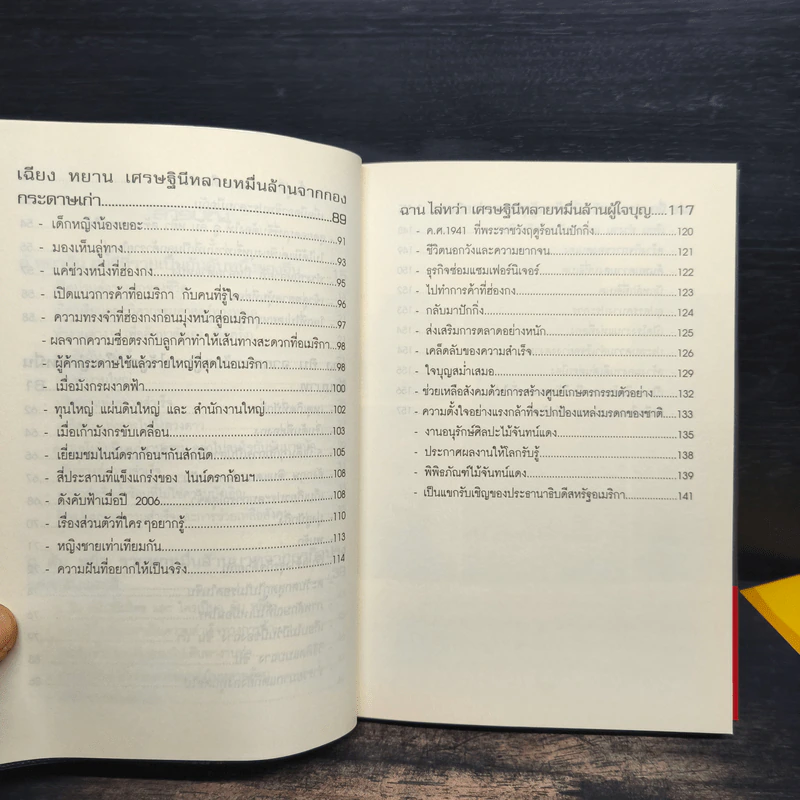 เฉียง หยาน เศรษฐินีหลายหมื่นล้านจากกอง
กระดาษเก่า....................................................89
- เด็กหญิงน้องเยอะ....................................................91
- มองเห็นลู่ทาง....................................................93
- แค่ช่วงหนึ่งที่ฮ่องกง....................................................95
- เปิดแนวการค้าที่อเมริกา กับคนที่รู้ใจ..............................96
- ความทรงจำที่ฮ่องกงก่อนมุ่งหน้าสู่อเมริกา.........................97
- ผลจากความซื่อตรงกับลูกค้าทำให้เส้นทางสะดวกที่อเมริกา..98
- ผู้ค้ากระดาษใช้แล้วรายใหญ่ที่สุดในอเมริกา.......................98
- เมื่อมังกรผงาดฟ้า....................................................100
- ทุนใหญ่ แผ่นดินใหญ่ และ สำนักงานใหญ่.......................102
- เมื่อเก้ามังกรขับเคลื่อน.............................................103
- เยี่ยมชมไนน์ดราก้อนฯกันสักนิด..................................108
- สี่ประสานที่แข็งแกร่งของ ไนน์ดราก้อนฯ.......................108
- ดังคับฟ้าเมื่อปี 2006................................................108
- เรื่องส่วนตัวที่ใครๆอยากรู้..........................................110
- หญิงชายเท่าเทียมกัน................................................113
- ความฝันที่อยากให้เป็นจริง..........................................114
ฉาน ไล่หว่า เศรษฐินีหลายหมื่นล้านผู้ใจบุญ.....117
- ค.ศ.1941 ที่พระราชวังฤดูร้อนในปักกิ่ง.........................120
- ชีวิตนอกวังและความยากจน.......................................121
- ธุรกิจซ่อมแซมเฟอร์นิเจอร์..........................................122
- ไปทำการค้าที่ฮ่องกง................................................123
- กลับมาปักกิ่ง..........................................................124
- ส่งเสริมการตลาดอย่างหนัก........................................125
- เคล็ดลับของความสำเร็จ............................................126
- ใจบุญสม่ำเสมอ.......................................................129
- ช่วยเหลือสังคมด้วยการสร้างศูนย์เกษตรกรรมตัวอย่าง......132
- ความตั้งใจอย่างแรงกล้าที่จะปกป้องแหล่งมรดกของชาติ...133
- งานอนุรักษ์ศิลปะไม้จันทน์แดง....................................135
- ประกาศผลงานให้โลกรับรู้..........................................138
- พิพิธภัณฑ์ไม้จันทน์แดง.............................................139
- เป็นแขกรับเชิญของประธานาธิบดีสหรัฐอเมริกา.............141